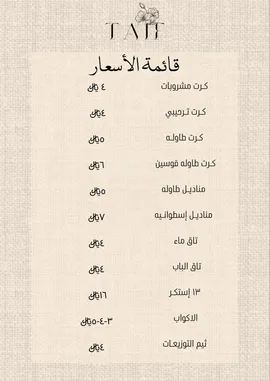 TAIF
قائمة الأسعار
كرت مشروبات ٤ ريال
كرت ترحيبي ٤ ريال
كرت طاوله ٥ ريال
كرت طاوله قوسين ٦ ريال
مناديل طاوله ٥ ريال
مناديل إسطوانيه ٧ ريال
تاق ماء ٤ ريال
تاق الباب ٤ ريال
١٣ إستكر ١٦ ريال
الاكواب ٣-٤-٥ ريال
ثيم التوزيعات ٤ ريال